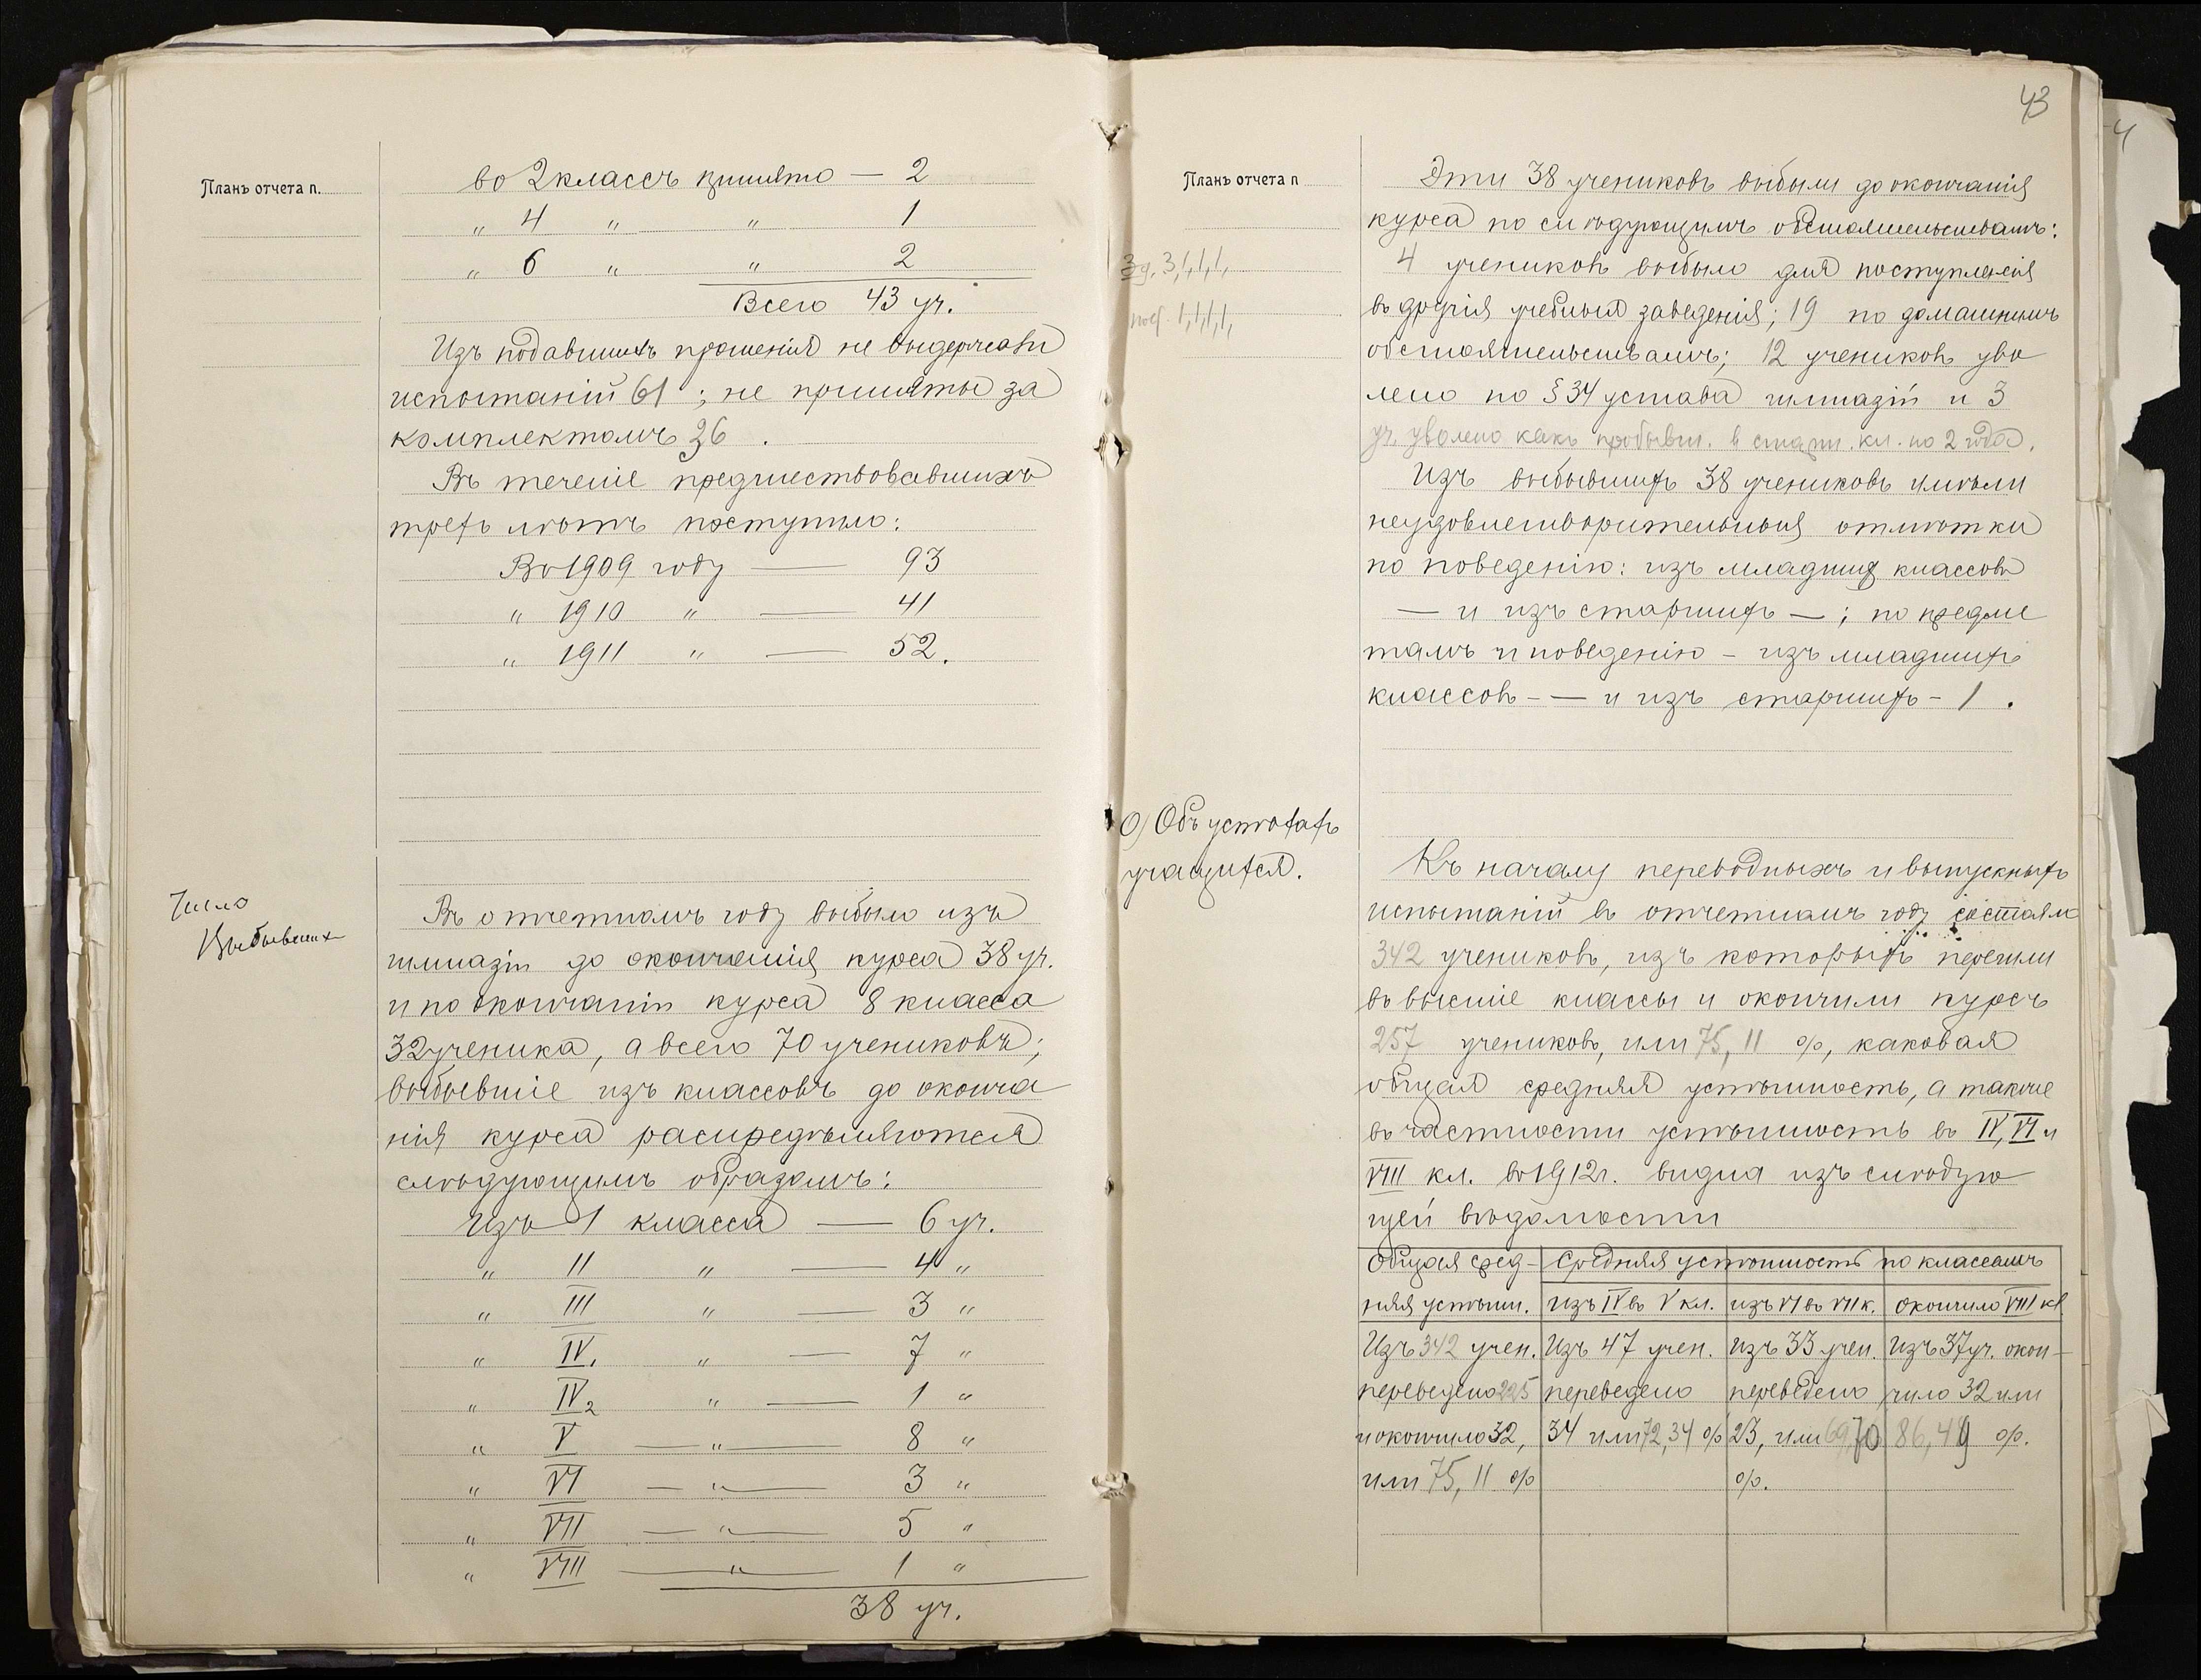 Планъ отчета п.
во 2 классъ принято — 2
„ 4 „ „ 1
„ 6 „ „ 2
Всего 43 уч.
Изъ подавшихъ прошенія не выдержали
испытаній 61 ; не приняты за
комплектомъ 36 .
Въ теченіе предшествовавшихъ
трехъ лѣтъ поступило:
Въ 1909 году — 93
„ 1910 „ — 41
„ 1911 „ — 52.
Число
Выбывших
Въ отчетномъ году выбыло изъ
гимназіи до окончанія курса 38 уч.
и по окончаніи курса 8 класса
32 ученика, а всего 70 учениковъ;
выбывшіе изъ классовъ до оконча
нія курса распредѣляются
слѣдующимъ образомъ:
Изъ 1 класса — 6 уч.
„ II „ — 4 „
„ III „ — 3 „
„ IV1 „ — 7 „
„ IV2 „ — 1 „
„ V — „ — 8 „
„ VI — „ — 3 „
„ VII — „ — 5 „
„ VIII — „ — 1 „
38 уч.
43
Планъ отчета п
Эти 38 учениковъ выбыли до окончанія
курса по слѣдующимъ обстоятельствамъ:
4 учениковъ выбыло для поступленія
въ другія учебныя заведенія; 19 по домашнимъ
обстоятельствамъ; 12 учениковъ уво
лено по § 34 устава гимназій и 3
уч. уволено какъ пробывш. в старш. кл. по 2 года.
Изъ выбывшихъ 38 учениковъ имѣли
неудовлетворительныя отмѣтки
по поведенію: изъ младших классовъ
— и изъ старшихъ — ; по предме
тамъ и поведенію – изъ младшихъ
классовъ – — и изъ старшихъ – 1 .
О) Объ успѣхахъ
учащихся.
Къ началу переводныхъ и выпускныхъ
испытаній въ отчетномъ году состояло
342 учениковъ, изъ которыхъ перешли
въ высшіе классы и окончили курсъ
257 учениковъ, или 75,11 %, каковая
общая средняя успѣшность, а также
въ частности успѣшность въ IV, VI и
VIII кл. въ 1912 г. видна изъ слѣдую
щей вѣдомости
Общая сред- Средняя успѣшность по классамъ
няя успѣшн. изъ IV въ V кл. изъ VI въ VII к. окончило VIII кл
Изъ 342 учен. Изъ 47 учен. Изъ 33 учен. Изъ 37 уч. окон-
переведено 225 переведено переведено чило 32 или
и окончило 32, 34 или 72,34 % 23, или 69,70 86,49 %.
или 75,11 % %.